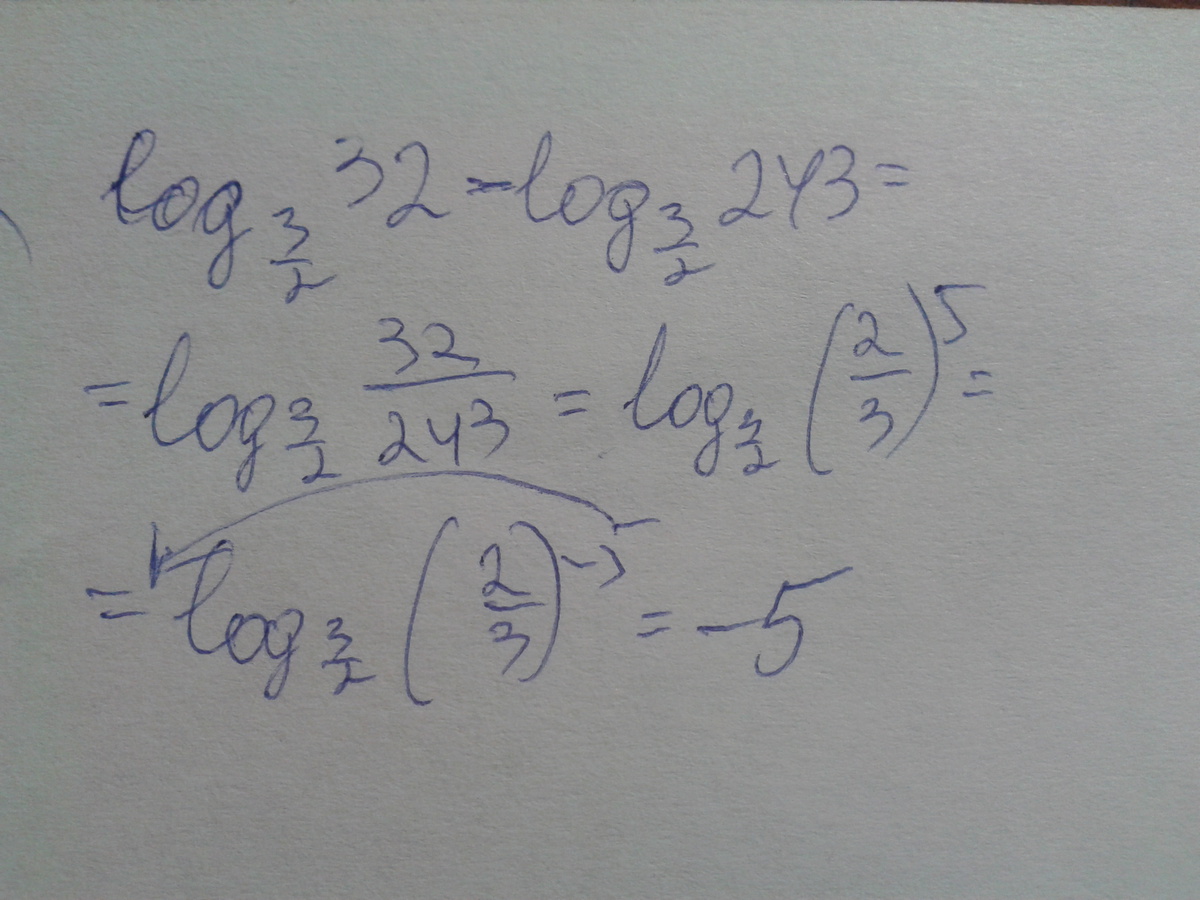 log_{3/2} 32 - log_{3/2} 243 =
= log_{3/2} 32/243 = log_{3/2} (2/3)^5 =
= log_{3/2} (2/3)^{-5} = -5